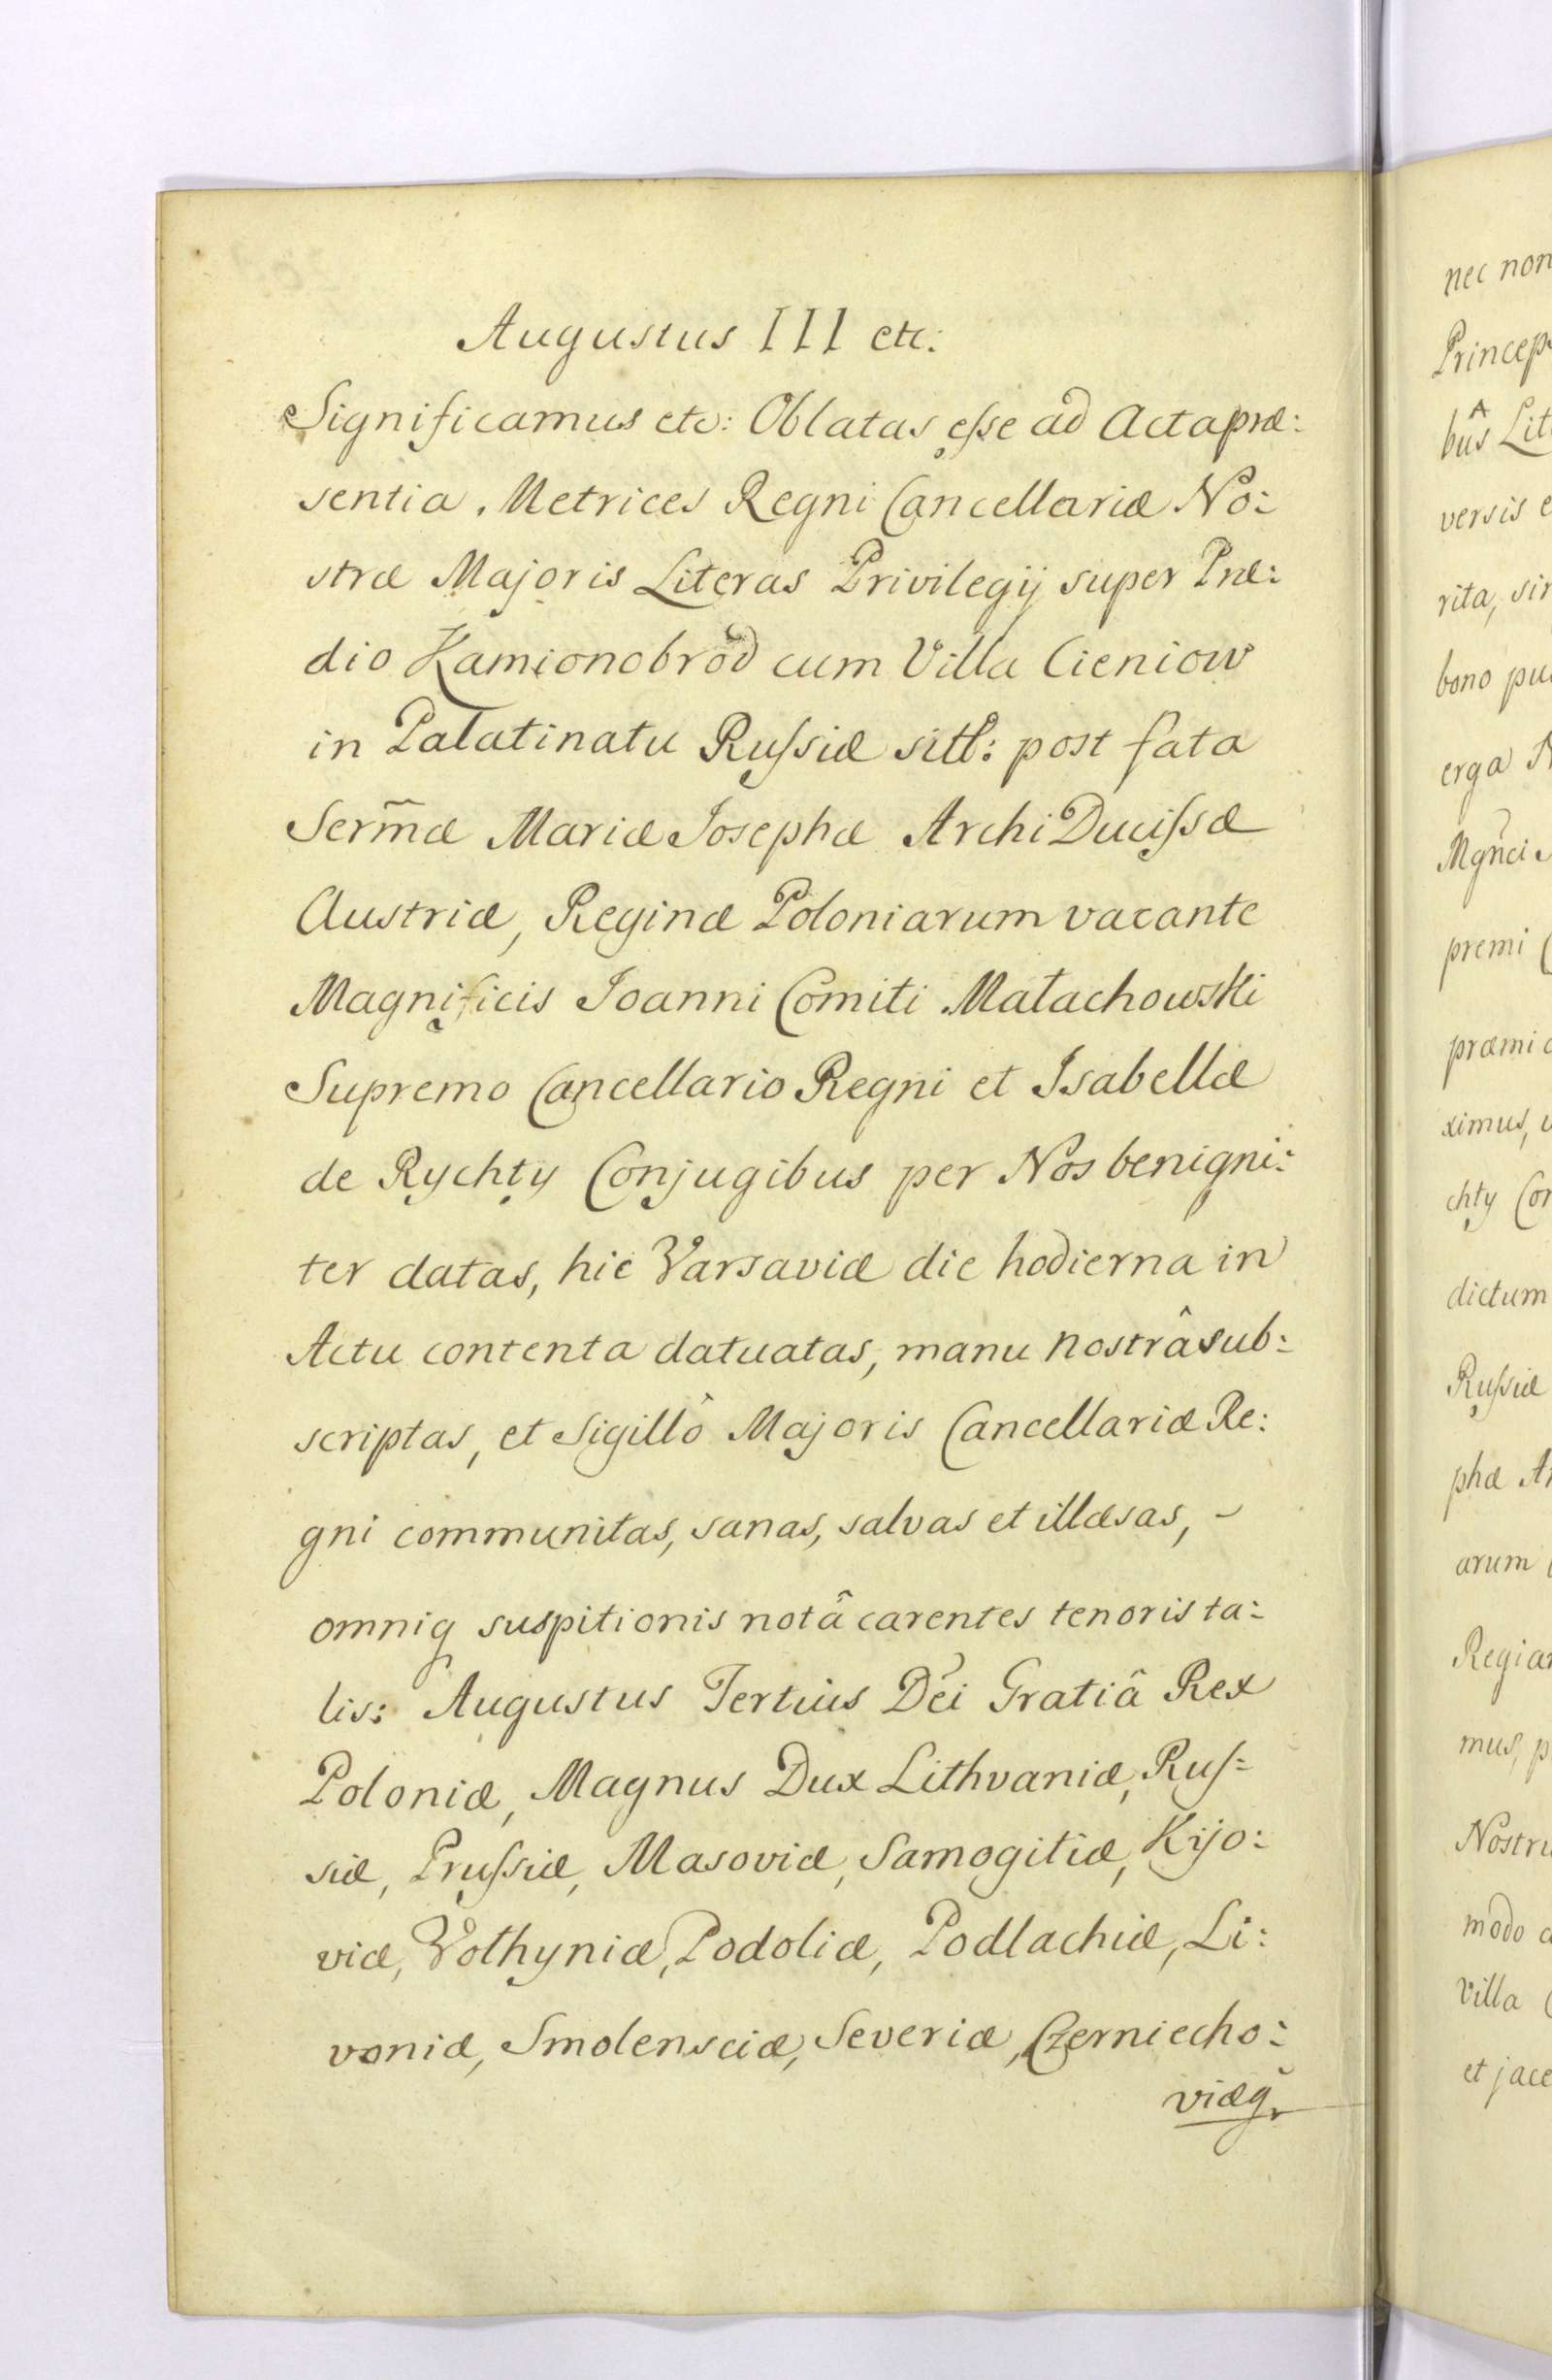 Augustus III etc:
Significamus etc: Oblatas esse ad Acta præ:
sentia, Metrices Regni Cancellariæ No:
stræ Majoris Literas Privilegij super Præ:
dio Kamionobrod cum Villa Cieniow
in Palatinatu Russiæ sitt: post fata
Serm̃æ Mariæ Josephæ ArchiDucissæ
Austriæ, Reginæ Poloniarum vacante
Magnificis Joanni Comiti Małachowski
Supremo Cancellario Regni et Isabellæ
de Rychty Conjugibus per Nos benigni:
ter datas, hic Varsaviæ die hodierna in
Actu contenta datuatas, manu nostrâ sub:
scriptas, et Sigillô Majoris Cancellariæ Re:
gni communitas, sanas, salvas et illæsas, -
omniq suspitionis notâ carentes tenoris ta:
lis: Augustus Tertius Dei Gratiâ Rex
Poloniæ, Magnus Dux Lithvaniæ, Rus:
siæ, Prussiæ, Masoviæ, Samogitiæ, Kijo:
viæ, Volhyniæ, Podoliæ, Podlachiæ, Li:
voniæ, Smolensciæ, Severiæ, Czerniecho:
viæq
nec non
Princep
bûs Lit
versis e
rita, sin
bono pu
erga N
Mgñci
premi C
præmi
ximus, u
chty Con
dictum
Russiæ
phæ Ar
arum
Regia
mus, p
Nostr
modo
Villa C
et jace